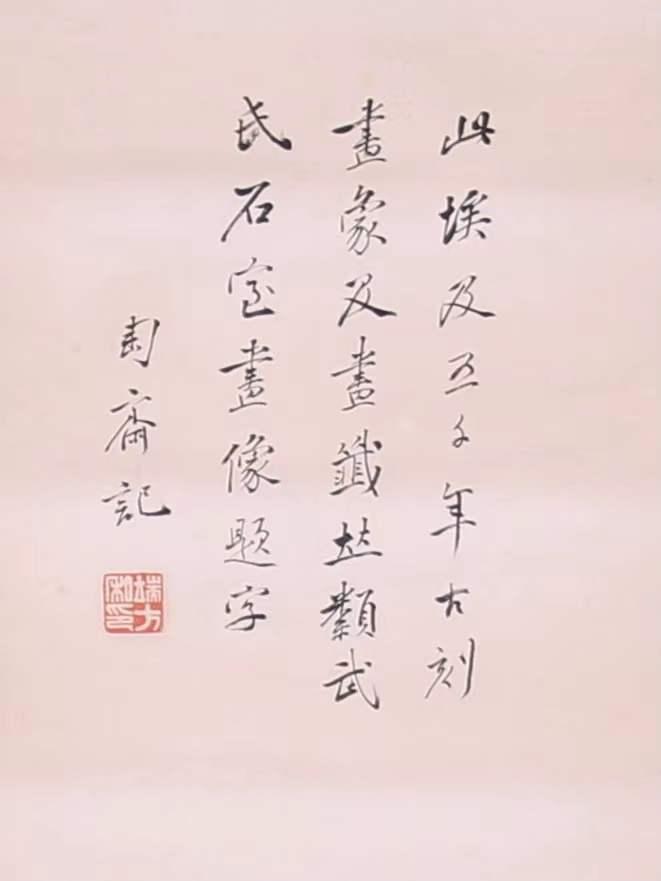 此埃及五千年古刻
畫象及畫鐵竝類武
氏石室畫像題字
匋齋記
端方私印